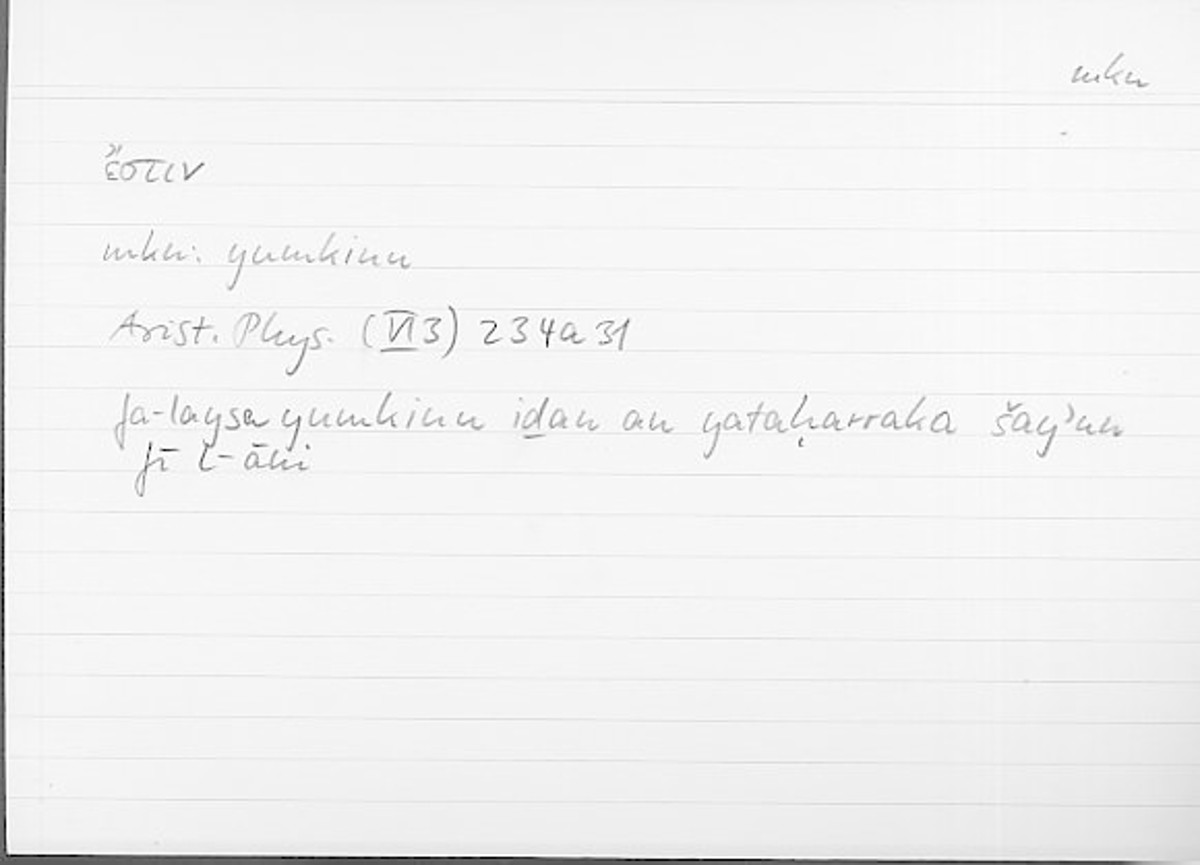 mkn
ἔστιν
mkn: yumkinu
Arist. Phys. (VI 3) 234a31
fa-laysa yumkinu iḏan an yataḥarraka šayʾun
fī l-āni